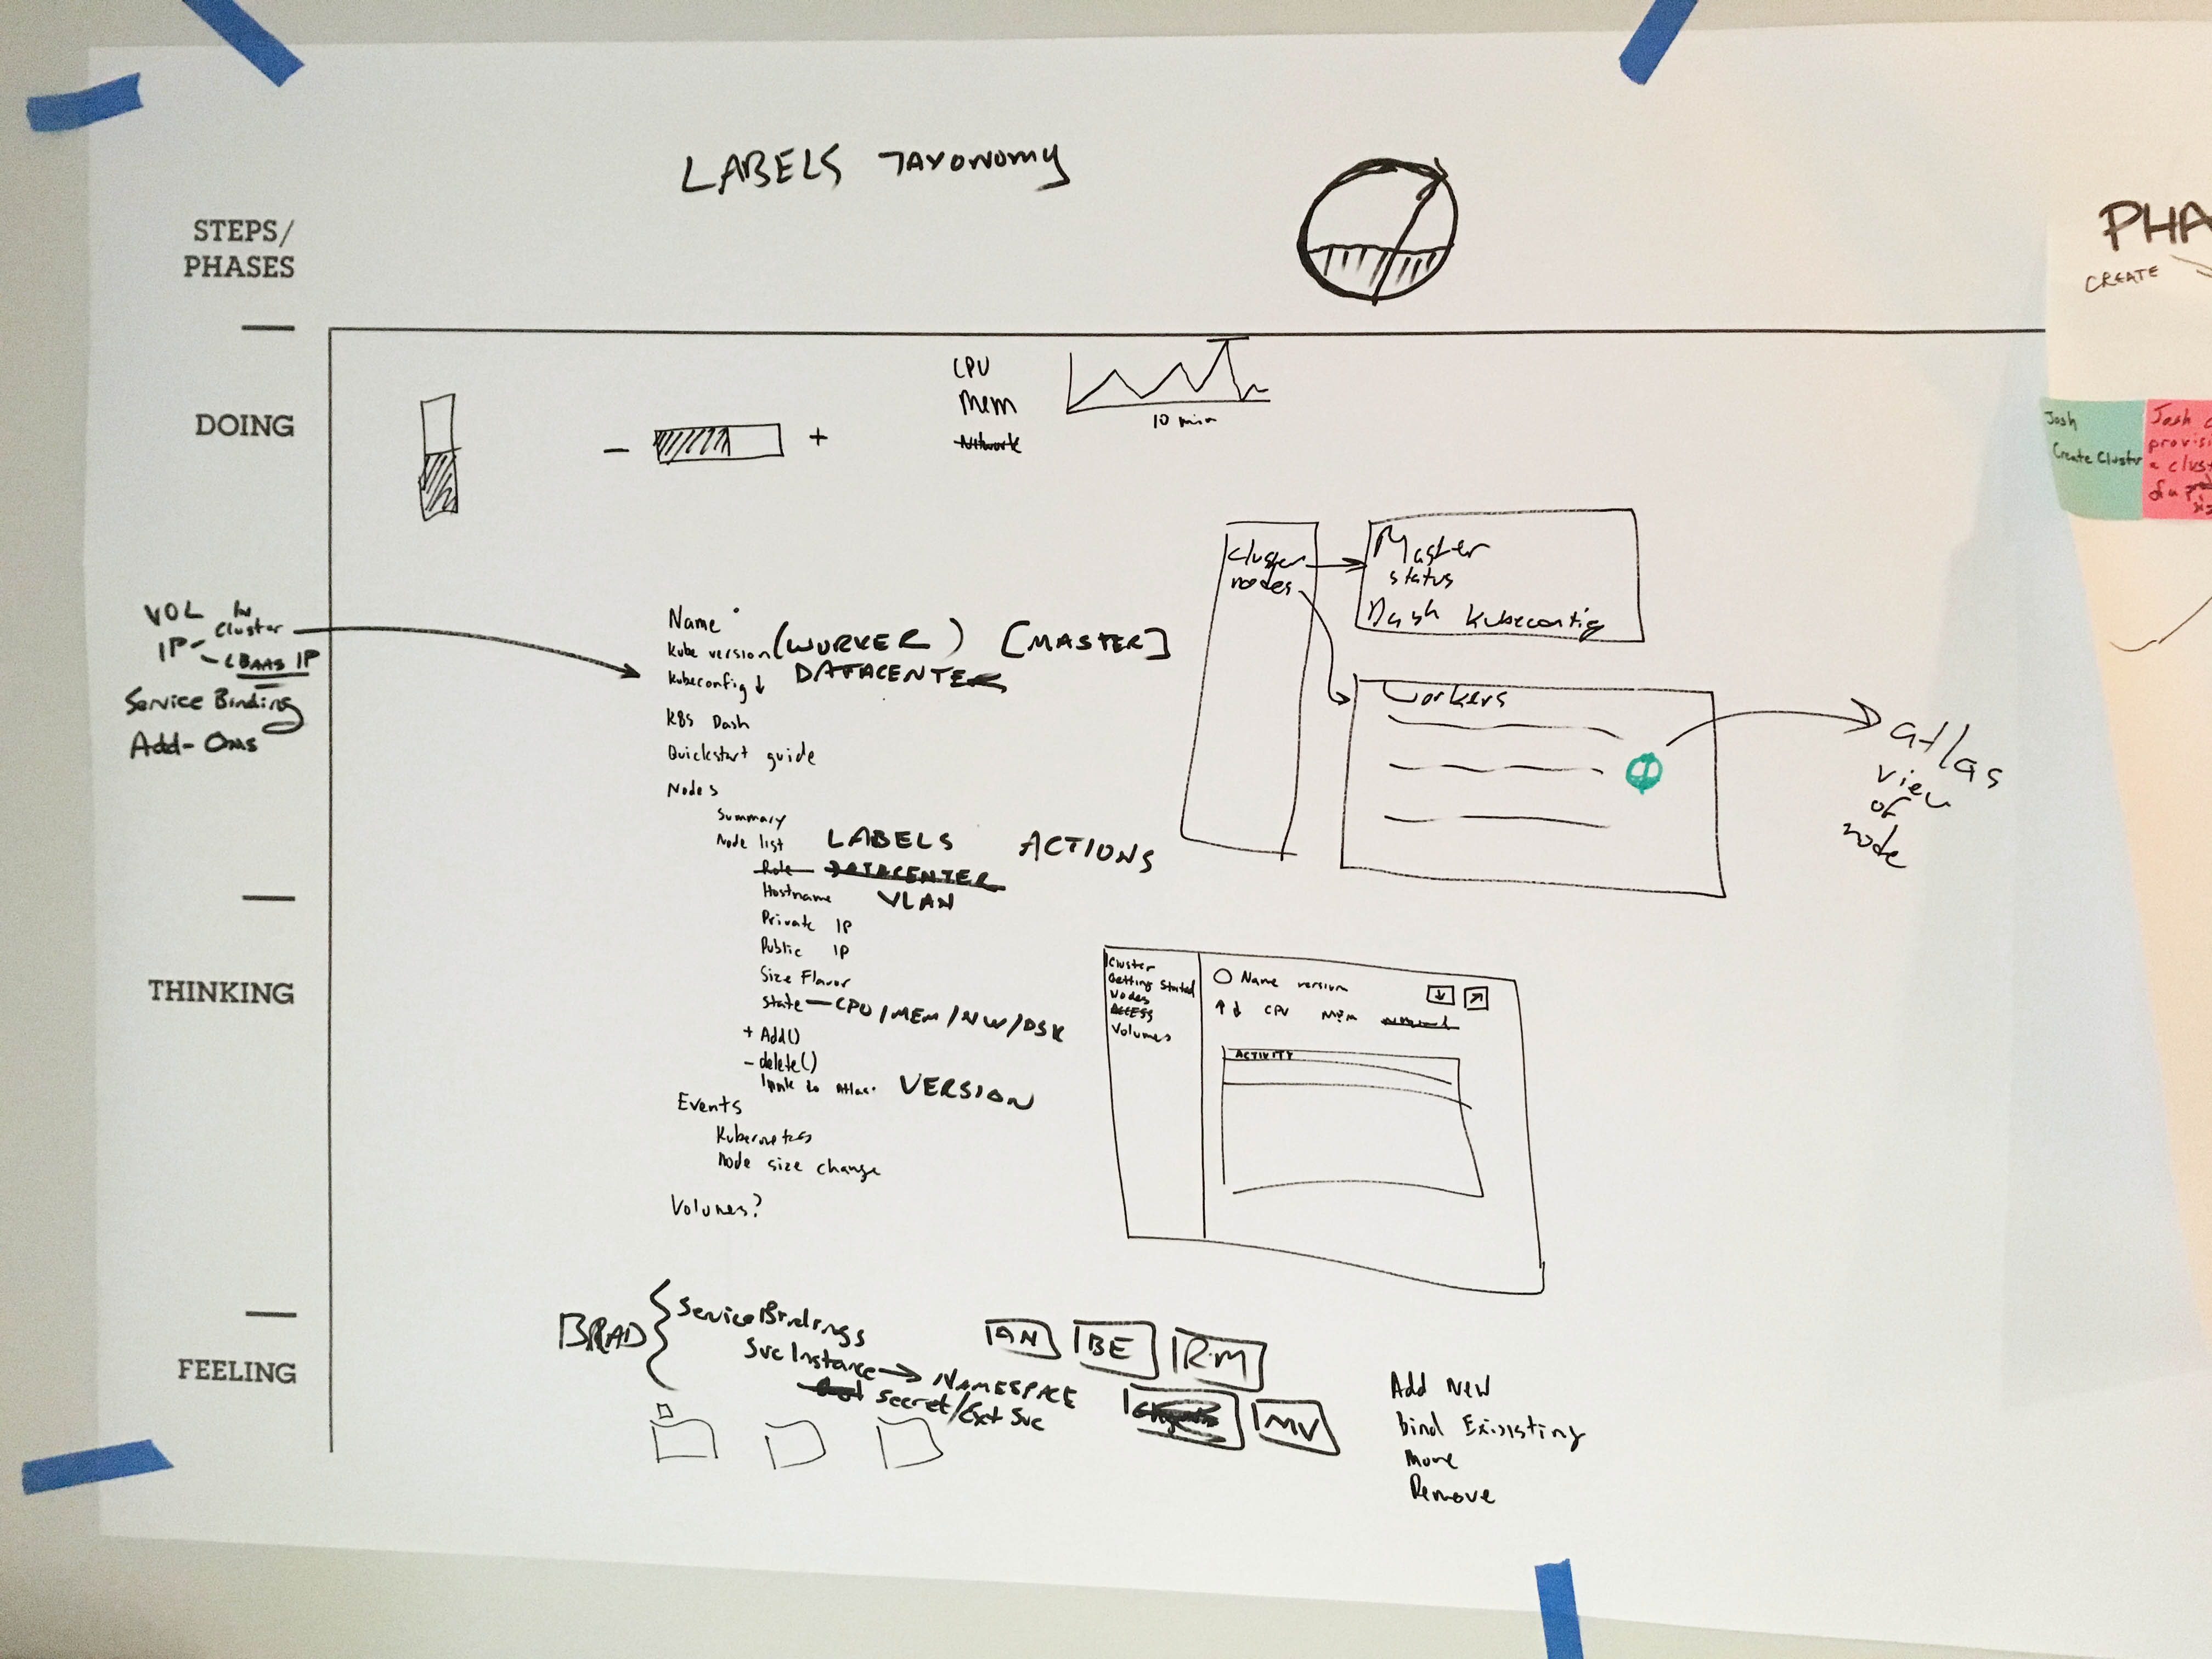 LABELS TAXONOMY
STEPS/
PHASES
DOING
THINKING
FEELING
PHA
CREATE
CPU
Mem
Network
10 min
Josh
Create Cluster
Josh
provisi
a clust
of a
VOL
In
Cluster
IP
LBAAS IP
Service Binding
Add-Ons
Name
Kube version (WORKER) [MASTER]
Kubeconfig ↓ DATACENTER
K8s Dash
Quickstart guide
Nodes
Summary
Node list LABELS ACTIONS
Role DATACENTER
Hostname VLAN
Private IP
Public IP
Size Flavor
State — CPU/MEM/NW/DSK
+ Add()
- delete()
link to Atlas. VERSION
Events
Kubernetes
Node size change
Volumes?
Cluster
nodes
Master
status
Dash Kubeconfig
Workers
atlas
view
of
node
Cluster
Getting Started
Nodes
ACCESS
Volumes
Name version
↑↓ CPU MEM
ACTIVITY
BRAD
Service Bindings
Svc Instance → NAMESPACE
secret/Ext Svc
AN
BE
RM
MV
Add New
Bind Exisisting
Move
Remove